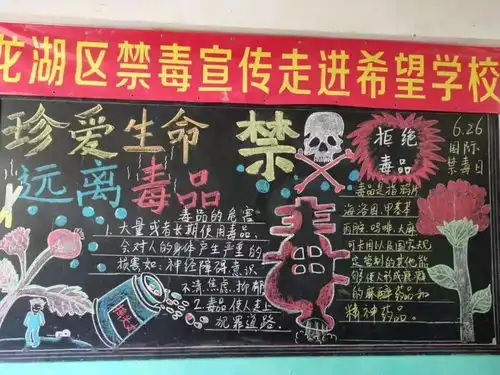 龙湖区禁毒宣传走进希望学校
珍爱生命
远离毒品
禁
拒绝
毒品
6.26
国际
禁毒日
毒品的危害
1.大量或者长期使用毒品,
会对人的身体产生严重的
损害如:神经障碍意识
不清,焦虑,抑郁
2.毒品使人走上
犯罪道路。
毒品是指鸦片
海洛因,甲基苯
丙胺,吗啡,大麻
可卡因以及国家规
定管制的其他能
够使人形成瘾癖
的麻醉药品和
精神药品。